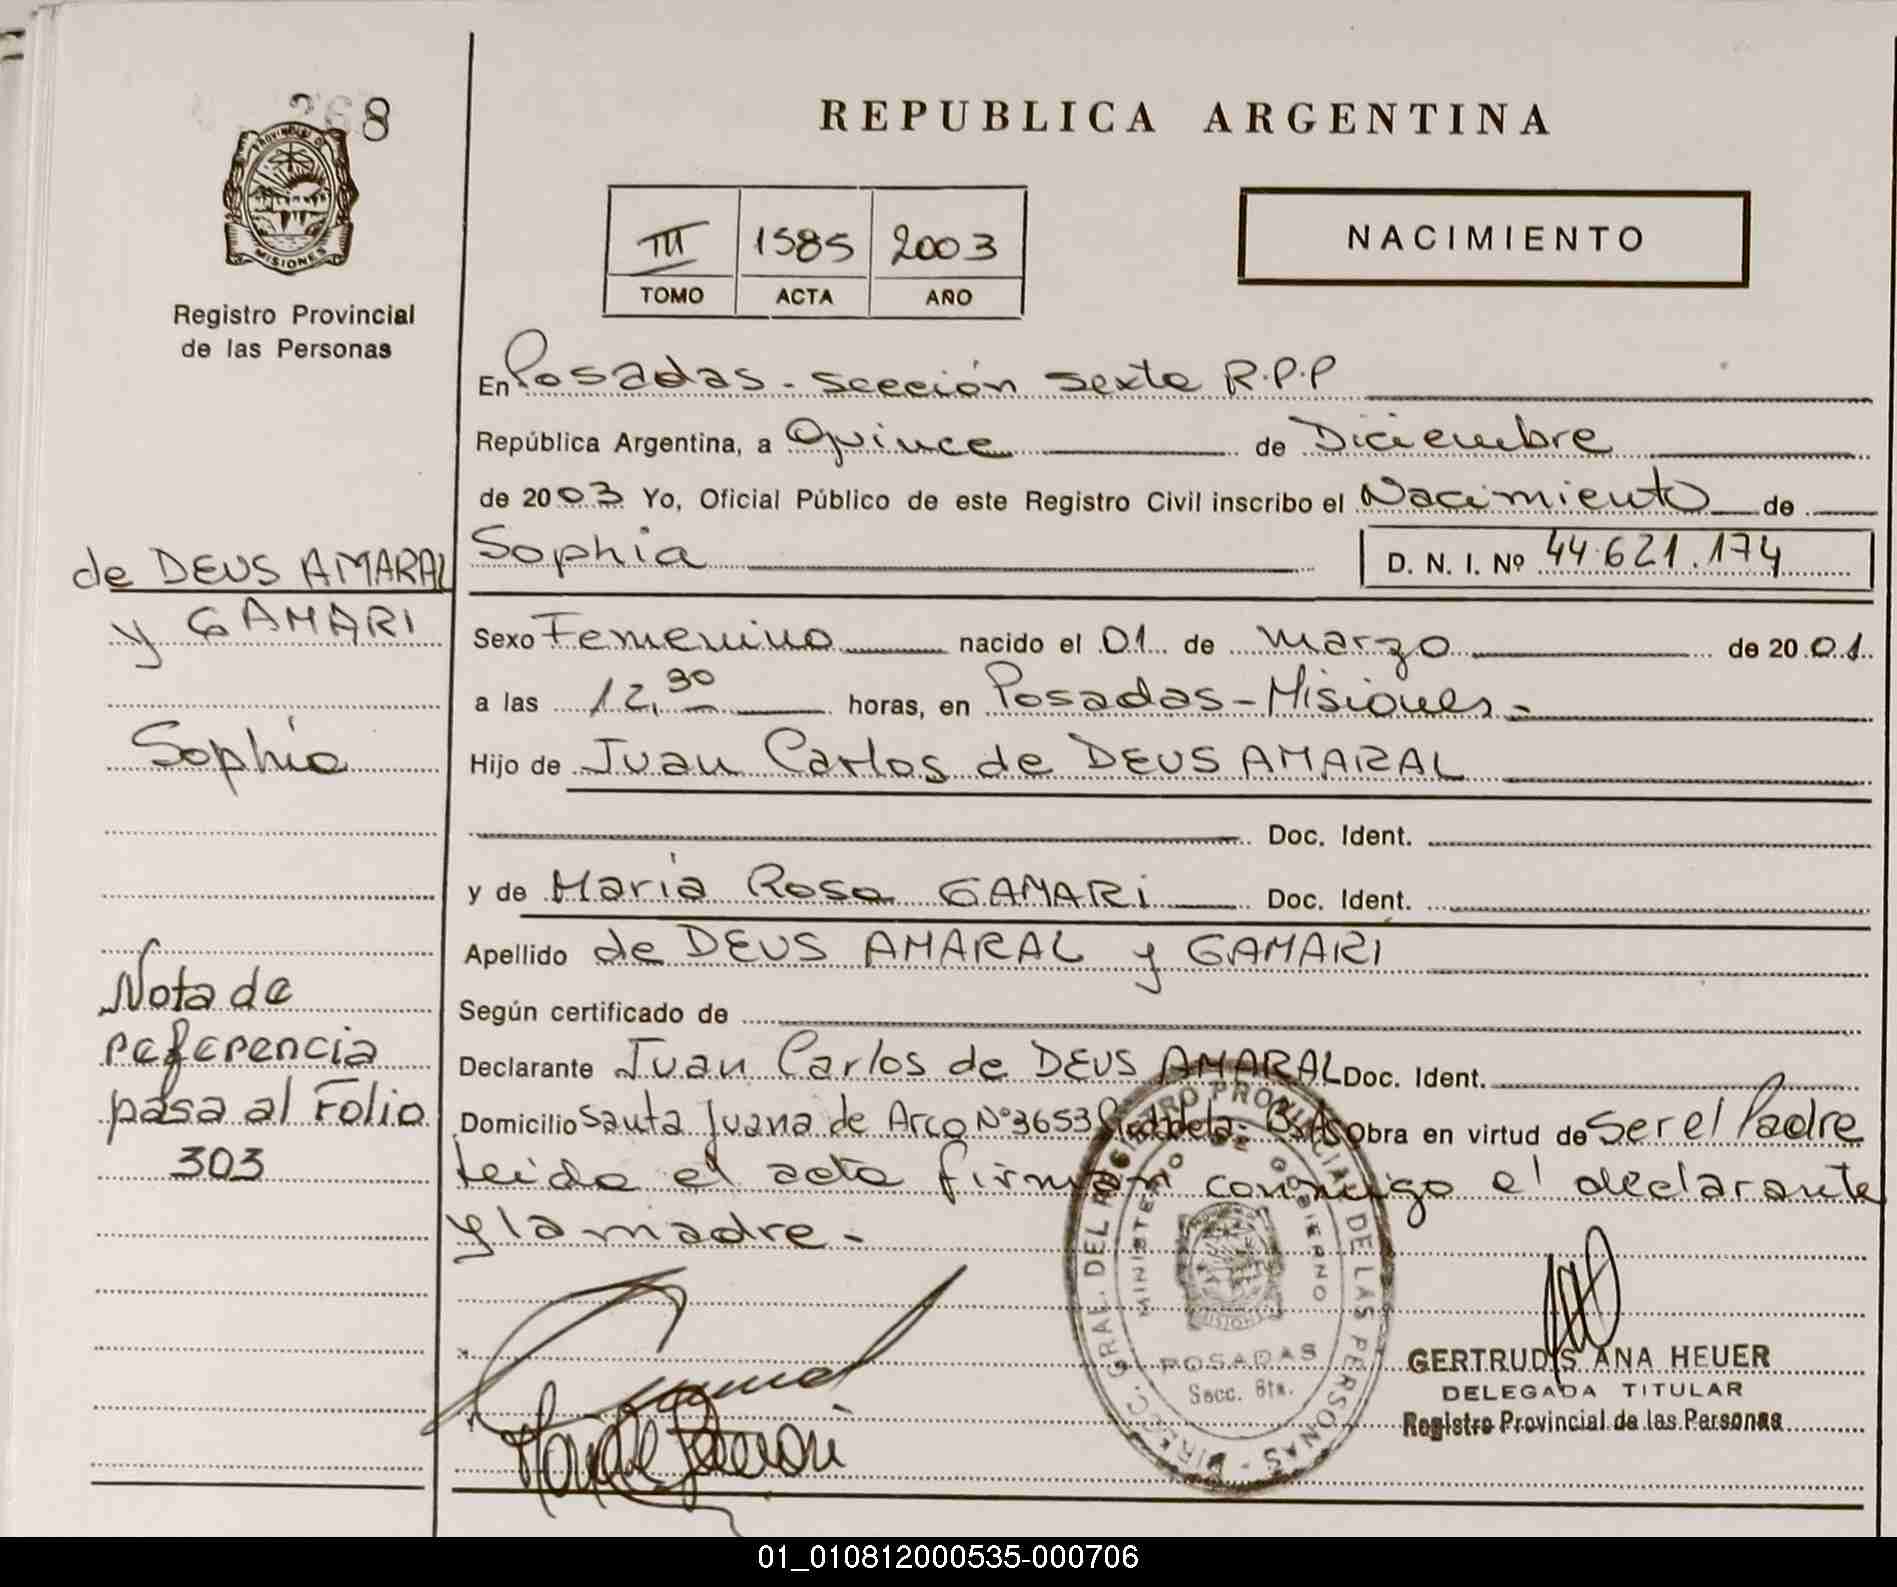 268
PROVINCIA DE
MISIONES
Registro Provincial
de las Personas
REPUBLICA ARGENTINA
III 1585 2003
TOMO ACTA AÑO
NACIMIENTO
En Posadas - sección sexta R.P.P
República Argentina, a Quince de Diciembre
de 2003 Yo, Oficial Público de este Registro Civil inscribo el Nacimiento de
Sophia D. N. I. Nº 44.621.174
de DEUS AMARAL
y GAMARI
Sophia
Sexo Femenino nacido el 01 de marzo de 2001
a las 12,30 horas, en Posadas - Misiones -
Hijo de Juan Carlos de DEUS AMARAL
Doc. Ident.
y de María Rosa GAMARI Doc. Ident.
Apellido de DEUS AMARAL y GAMARI
Según certificado de
Declarante Juan Carlos de DEUS AMARAL Doc. Ident.
Domicilio Santa Juana de Arco Nº 3653 Bs As Obra en virtud de Ser el Padre
Leida el acta firman conmigo el declarante
y la madre -
Nota de
referencia
pasa al Folio
303
DIRECC. GRAL. DEL REGISTRO PROVINCIAL DE LAS PERSONAS -
MINISTERIO DE GOBIERNO
MISIONES
POSADAS
Secc. 6ta.
GERTRUDIS ANA HEUER
DELEGADA TITULAR
Registro Provincial de las Personas
01_010812000535-000706